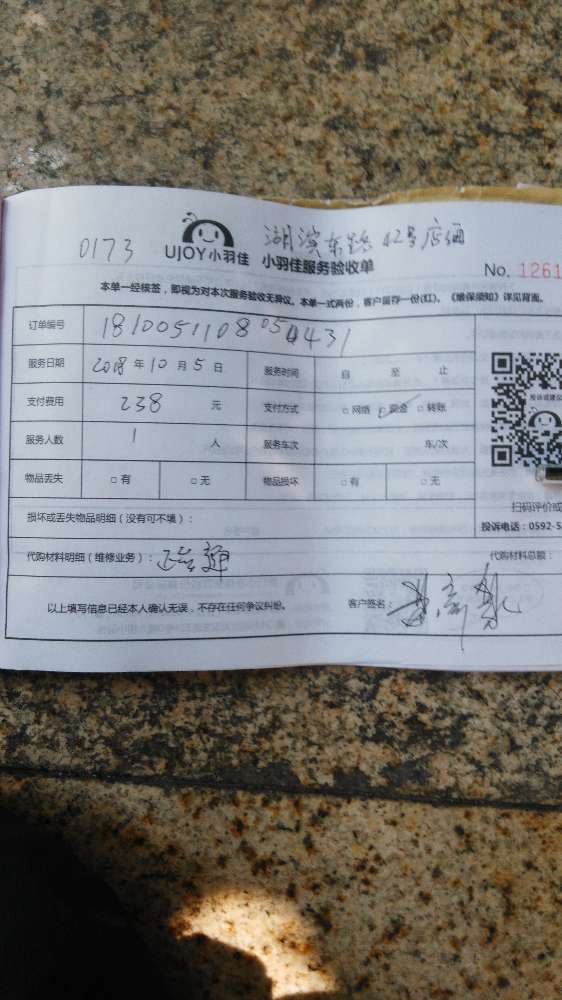 湖滨东路42号店面
0173 UJOY小羽佳 小羽佳服务验收单
No. 1261
本单一经核签，即视为对本次服务验收无异议。本单一式两份，客户留存一份(红)。《维保须知》详见背面。
订单编号 1810051108054431
服务日期 2018年10月5日 服务时间 自 至 止
支付费用 238 元 支付方式 □网络 □现金 □转账
投诉或建议
服务人数 1 人 服务车次 车/次
物品丢失 □有 □无 物品损坏 □有 □无
扫码评价或
损坏或丢失物品明细（没有可不填）：
投诉电话：0592-5
代购材料明细（维修业务）：
代购材料总额：
以上填写信息已经本人确认无误，不存在任何争议纠纷。 客户签名：